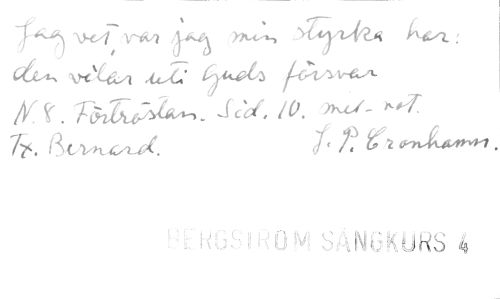 Jag vet, var jag min styrka har:
den vilar uti Guds försvar
N. 8. Förtröstan. Sid. 10. met-not.
Tx. Bernard. J. P. Cronhamn.
BERGSTRÖM SÅNGKURS 4